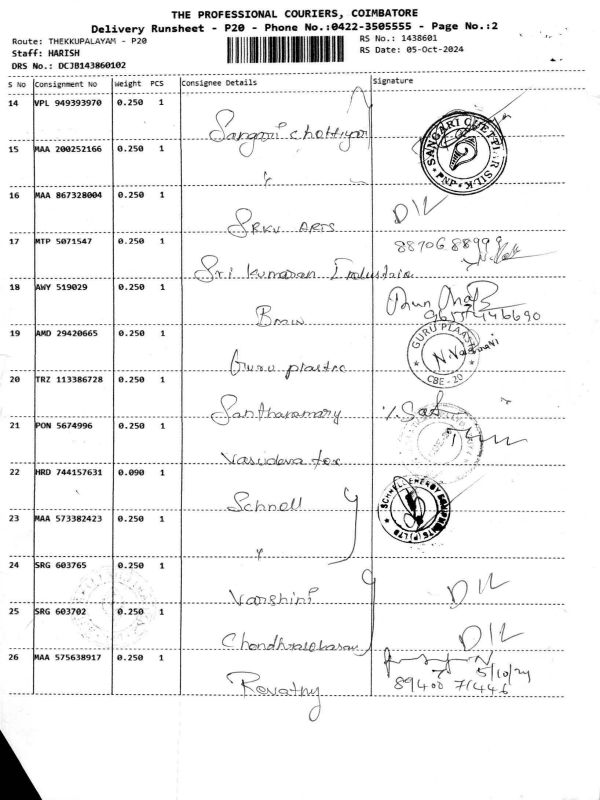 THE PROFESSIONAL COURIERS, COIMBATORE
Delivery Runsheet - P20 - Phone No.:0422-3505555 - Page No.:2
Route: THEKKUPALAYAM - P20
RS No.: 1438601
Staff: HARISH
RS Date: 05-Oct-2024
DRS No.: DCJB143860102
S No Consignment No Weight PCS Consignee Details Signature
14 VPL 949393970 0.250 1
Sangari Chettiyar
SANGARI CHETTIAR SILK PNP
15 MAA 200252166 0.250 1
16 MAA 867328004 0.250 1
SRKV ARTS D/L
17 MTP 5071547 0.250 1
Sri Kumaran Industrie
18 AWY 519029 0.250 1
Bmw
9655446690
19 AMD 29420665 0.250 1
Guru plastic
GURU PLAAST CBE - 20
20 TRZ 113386728 0.250 1
21 PON 5674996 0.250 1
Vasudeva tex
22 HRD 744157631 0.090 1
Schnell
SCHNELL ENERGY EQUIPMENTS (P) LTD
23 MAA 573382423 0.250 1
24 SRG 603765 0.250 1
Varshini D/L
25 SRG 603702 0.250 1
Chandhrasekaran D/L
26 MAA 575638917 0.250 1
5/10/24
89400 71446
Revathy